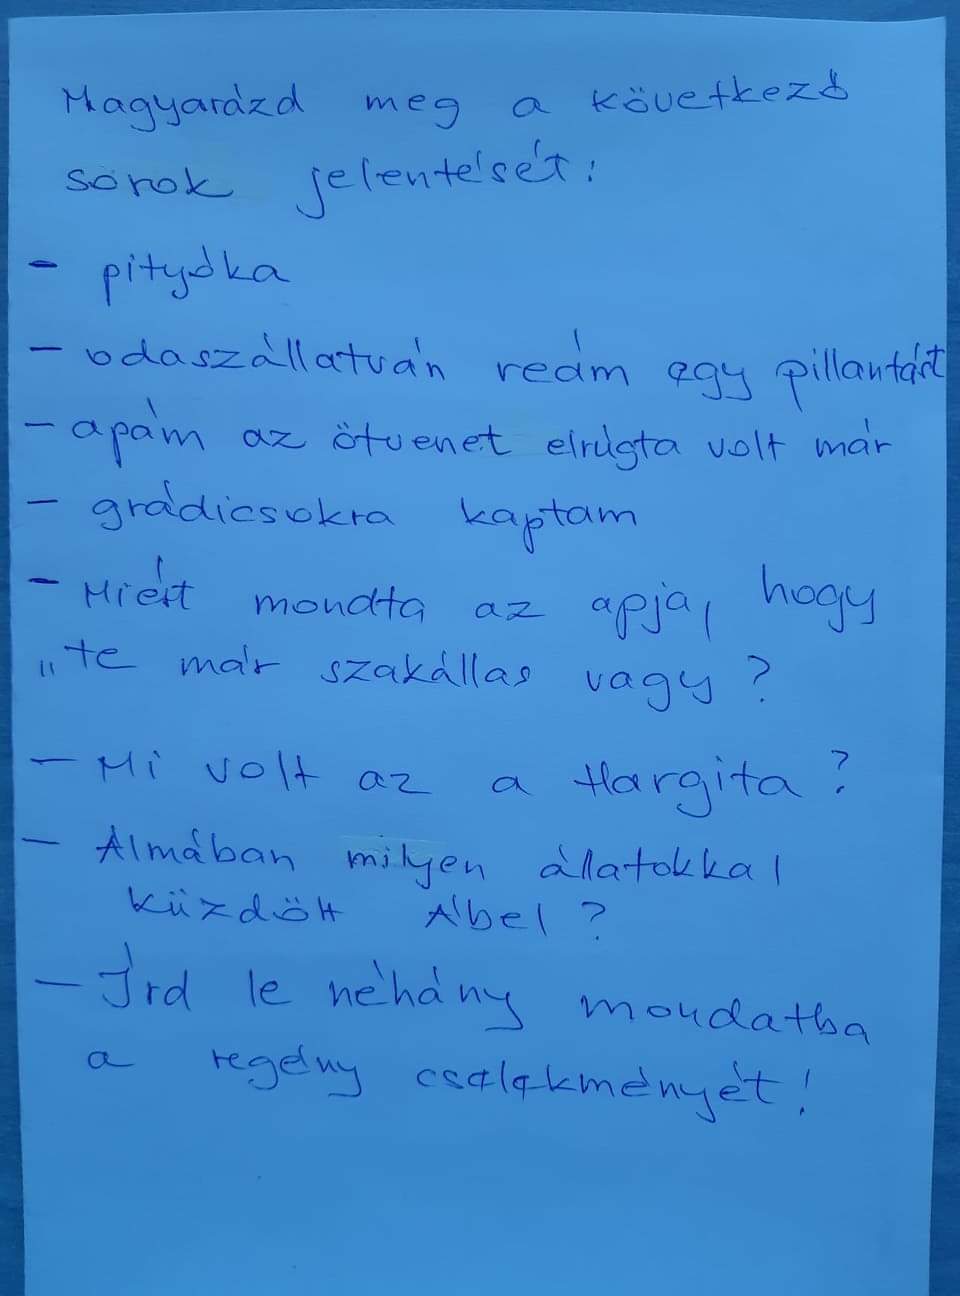 Magyarázd meg a következő
sorok jelentését:
- pityóka
- odaszállatván reám egy pillantást
- apám az ötvenet elrúgta volt már
- grádicsokra kaptam
- Miért mondta az apja, hogy
"te már szakállas vagy?
- Mi volt az a Hargita?
- Álmában milyen állatokkal
küzdött Ábel?
- Írd le néhány mondatba
a regény cselekményét!